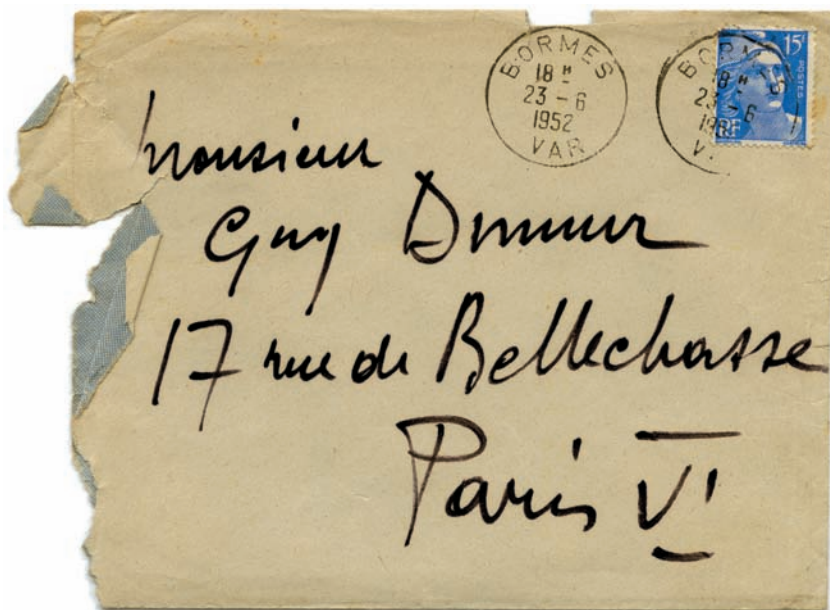 BORMES
18 H
23 - 6
1952
VAR
BORMES
18 H
23 - 6
15F
POSTES
RF
Monsieur
Guy Dumur
17 rue de Bellechasse
Paris VI